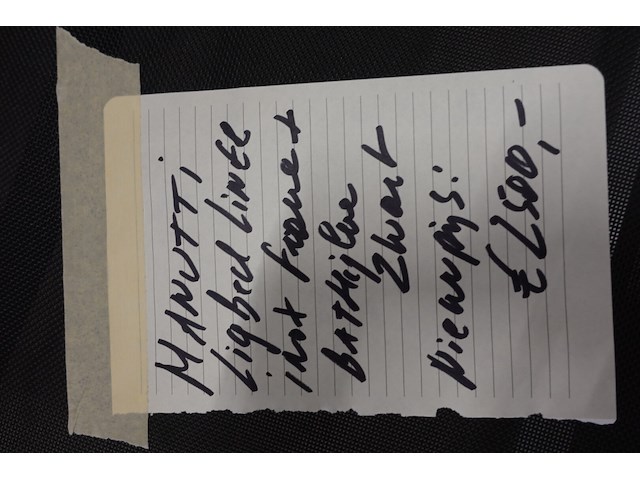 MANUTTI
Ligbed LINER
inox frame +
BATHyline
Zwart
Nieuwprijs:
€ 2500,-